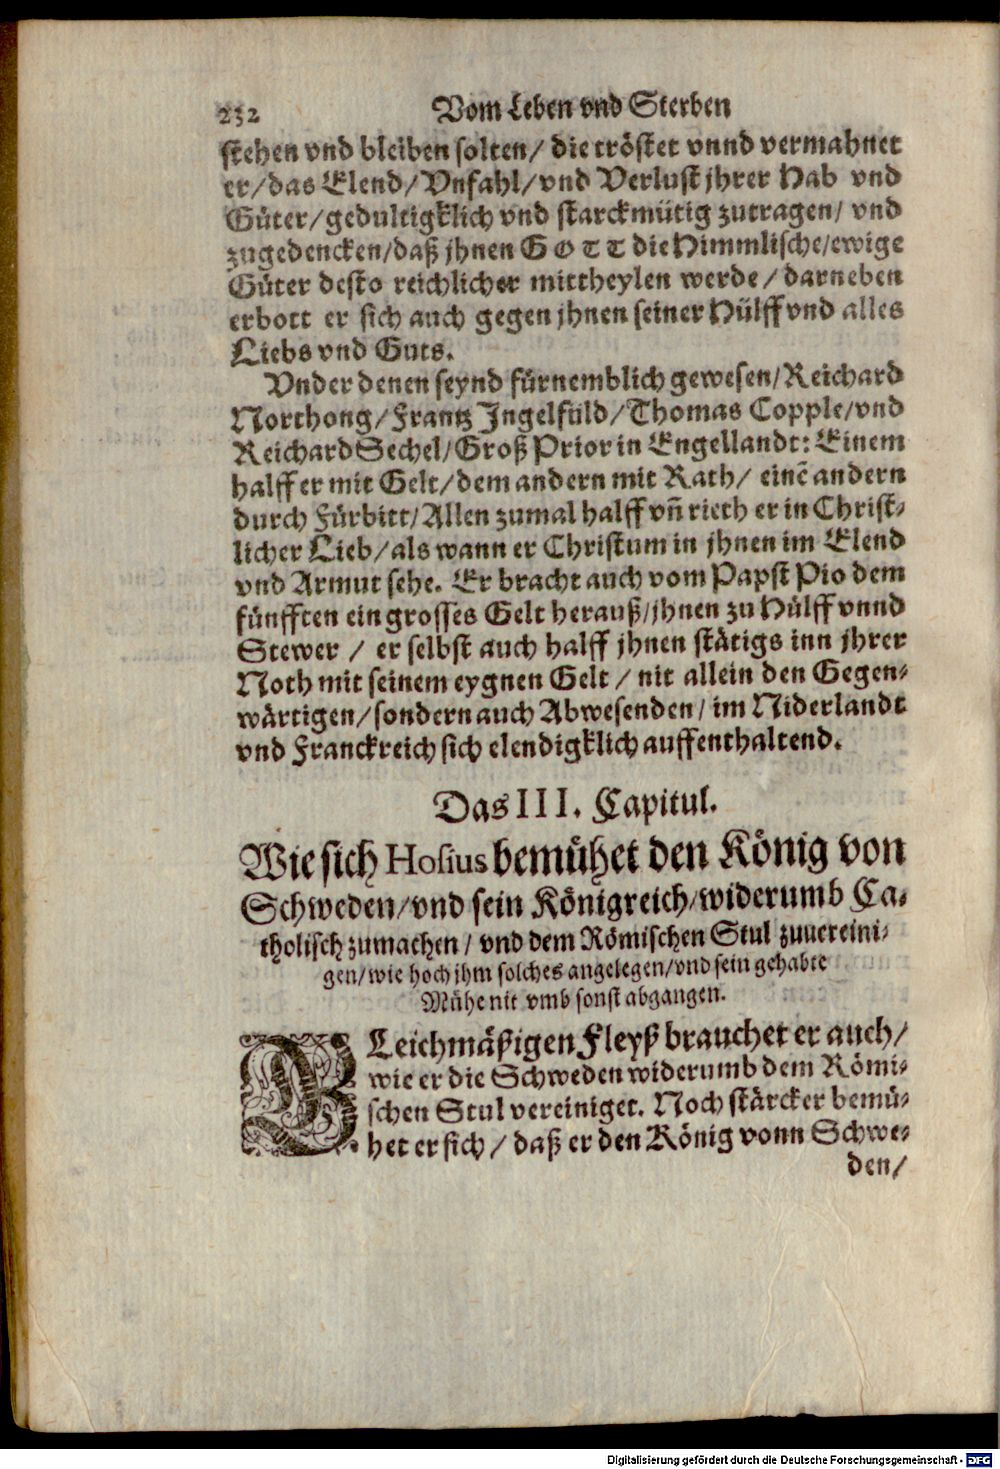 232 Vom Leben vnd Sterben
stehen vnd bleiben solten/ die tröstet vnnd vermahnet
er/das Elend/Vnfahl/vnd Verlust jhrer Hab vnd
Güter/gedultigklich vnd starckmütig zutragen/ vnd
zugedencken/daß jhnen GOTT die Himmlische/ewige
Güter desto reichlicher mittheylen werde/darneben
erbott er sich auch gegen jhnen seiner Hülff vnd alles
Liebs vnd Guts.
Vnder denen seynd fürnemblich gewesen/Reichard
Northong/Frantz Ingelfüld/Thomas Copple/vnd
Reichard Sechel/Groß Prior in Engellandt: Einem
halff er mit Gelt/dem andern mit Rath/ einē andern
durch Fürbitt/Allen zumal halff vñ rieth er in Christ-
licher Lieb/als wann er Christum in jhnen im Elend
vnd Armut sehe. Er bracht auch vom Papst Pio dem
fünfften ein grosses Gelt herauß/jhnen zu Hülff vnnd
Stewer / er selbst auch halff jhnen stätigs inn jhrer
Noth mit seinem eygnen Gelt / nit allein den Gegen-
wärtigen/sondern auch Abwesenden/ im Niderlandt
vnd Franckreich sich elendigklich auffenthaltend.
Das III. Capitul.
Wie sich Hosius bemühet den König von
Schweden/vnd sein Königreich/widerumb Ca-
tholisch zumachen/ vnd dem Römischen Stul zuuereini-
gen/wie hoch jhm solches angelegen/vnd sein gehabte
Mühe nit vmb sonst abgangen.
GLeichmäßigen Fleyß brauchet er auch/
wie er die Schweden widerumb dem Römi-
schen Stul vereiniget. Noch stärcker bemü-
het er sich / daß er den König vonn Schwe-
den/
Digitalisierung gefördert durch die Deutsche Forschungsgemeinschaft - DFG